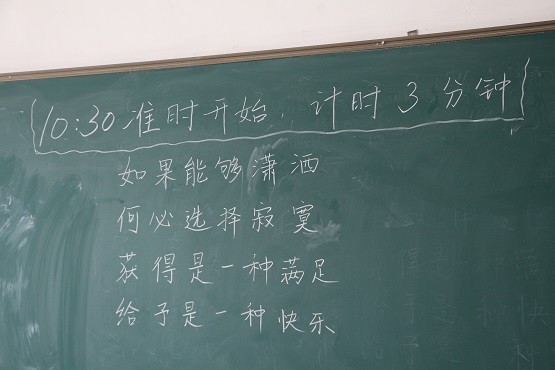 {10:30准时开始，计时3分钟}
如果能够潇洒
何必选择寂寞
获得是一种满足
给予是一种快乐